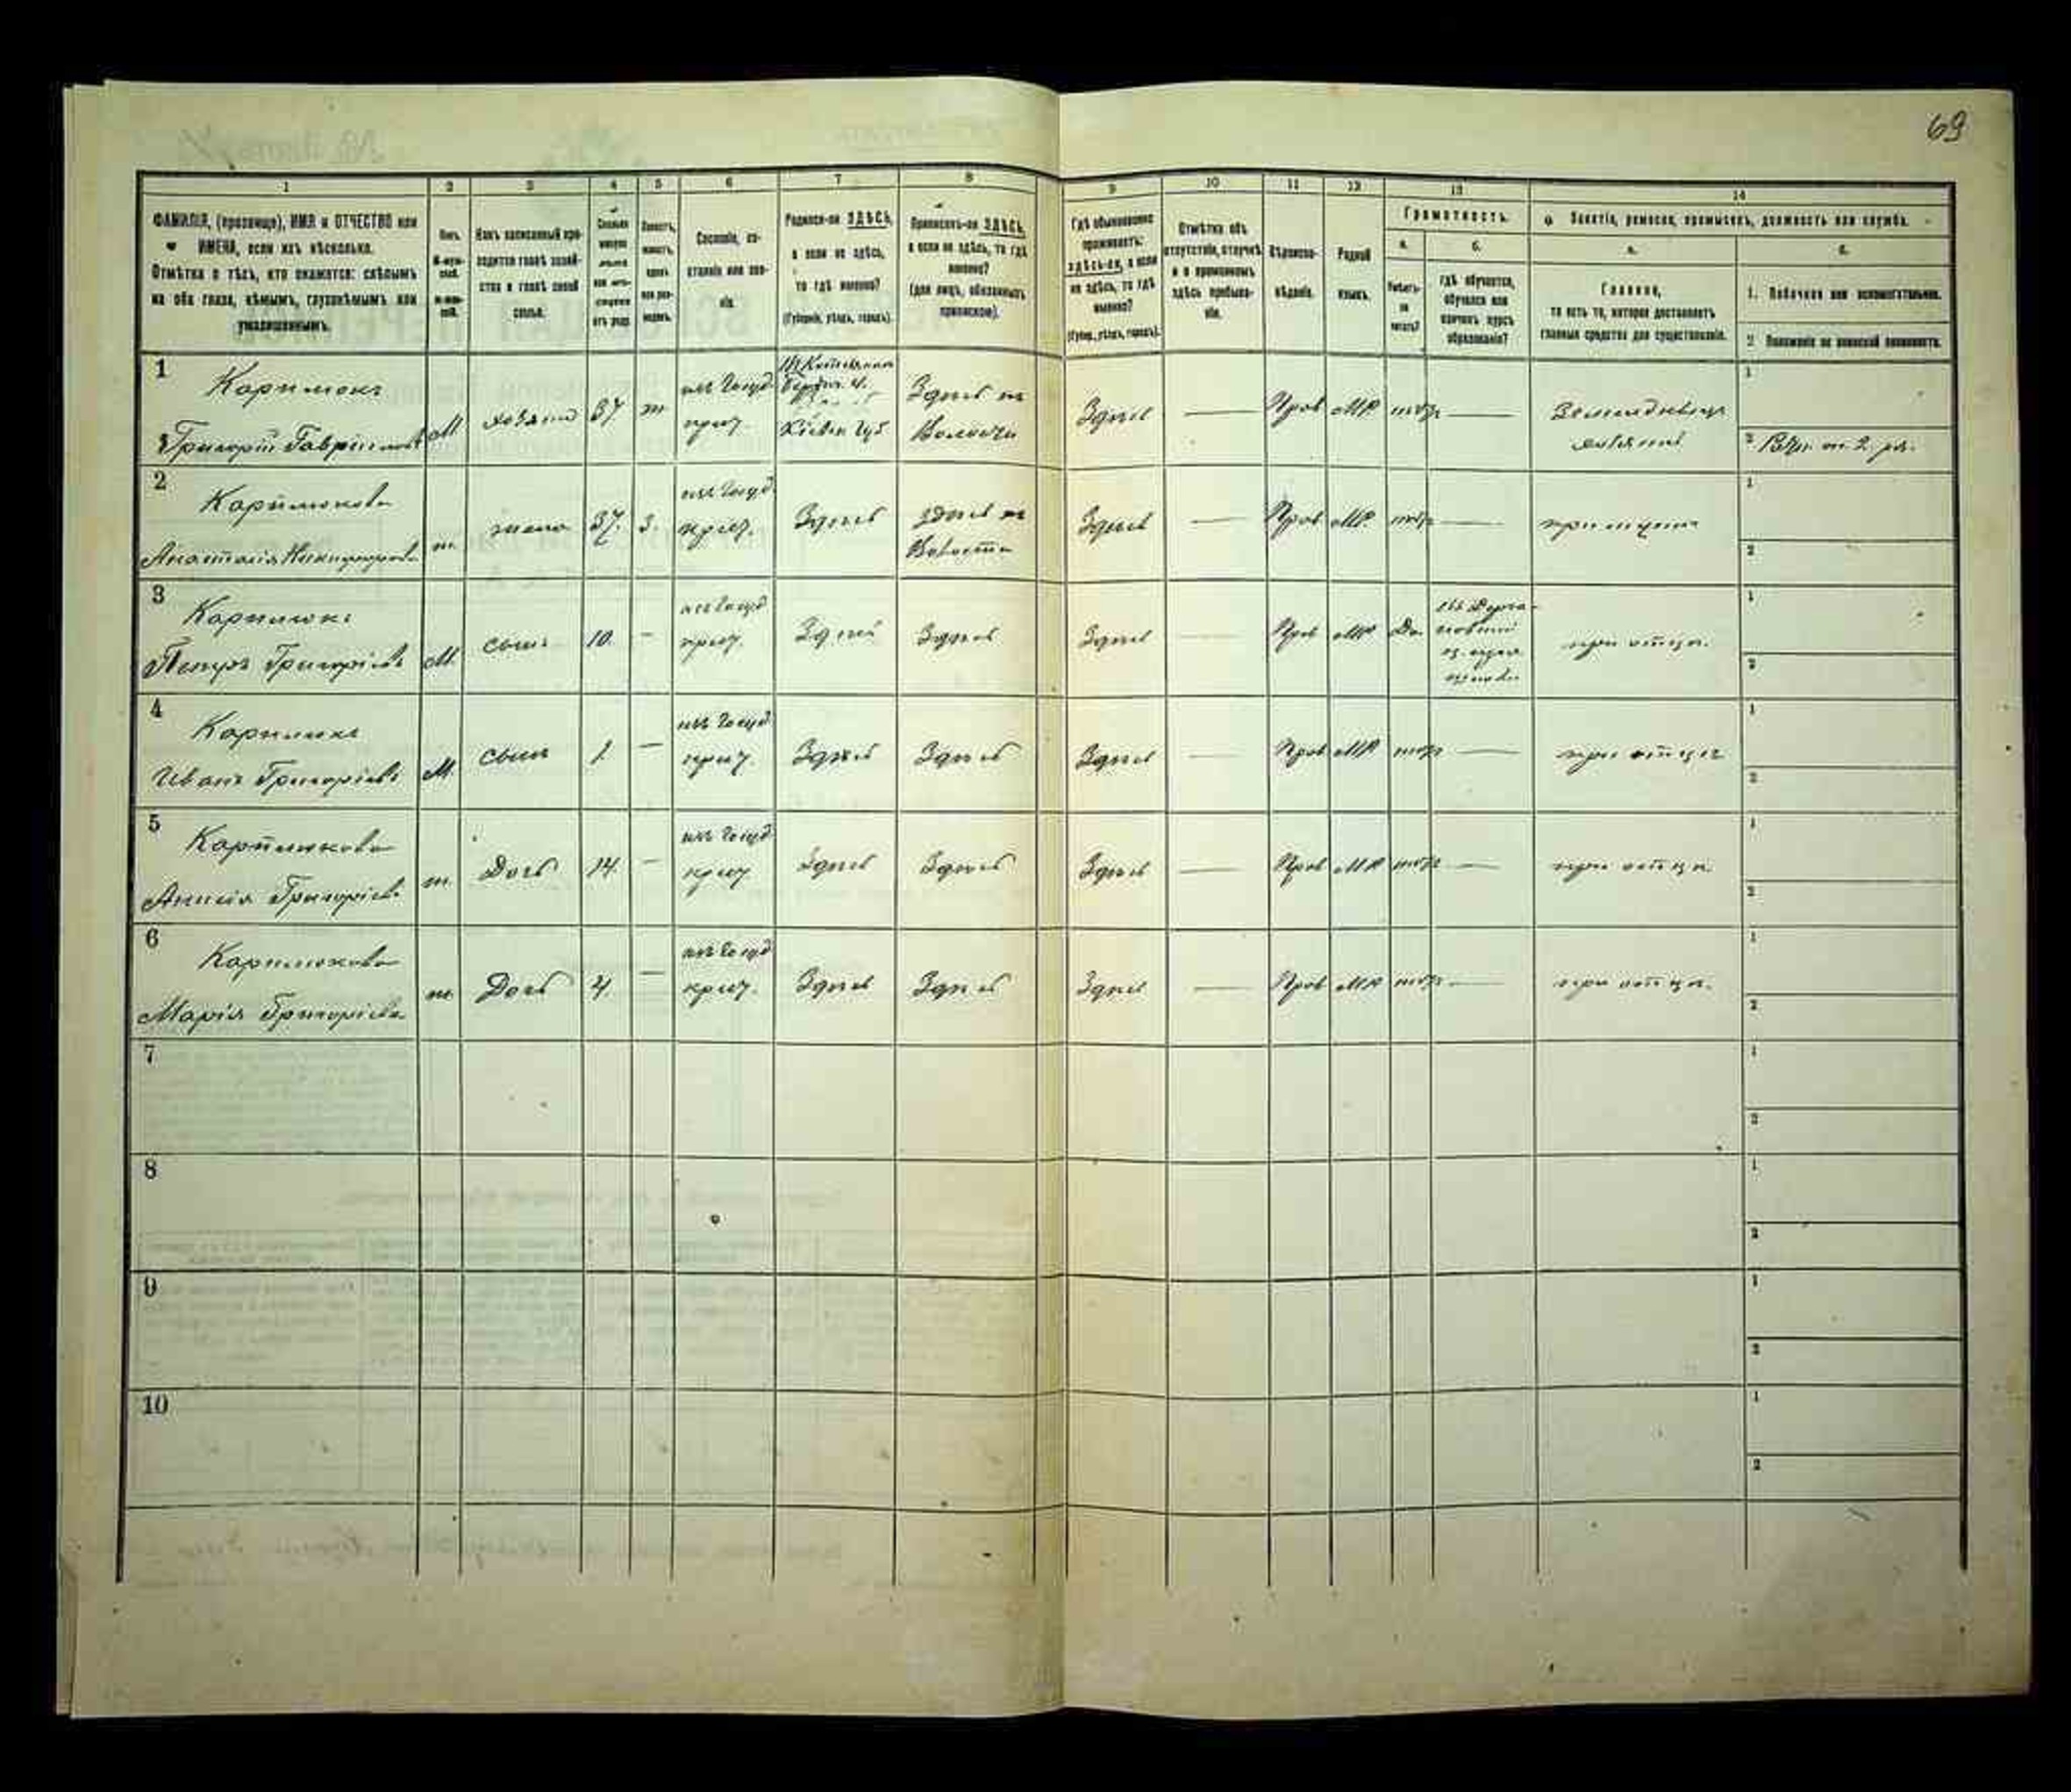 69
1 2 3 4 5 6 7 8 9 10 11 12 13 14
ФАМИЛІЯ, (прозвище), ИМЯ и ОТЧЕСТВО или
ИМЕНА, если ихъ нѣсколько.
Отмѣтка о тѣхъ, кто окажется: слѣпымъ
на оба глаза, нѣмымъ, глухонѣмымъ или
умалишеннымъ.
Полъ.
Какъ записанный при-
ходится главѣ хозяй-
ства и главѣ своей
семьи.
Сословіе, со-
стояніе или зва-
ніе.
Родился-ли ЗДѢСЬ,
а если не здѣсь,
то гдѣ именно?
(Губернія, уѣздъ, городъ).
Приписанъ-ли ЗДѢСЬ,
а если не здѣсь, то гдѣ
именно?
(для лицъ, обязанныхъ
припискою).
Гдѣ обыкновенно
проживаетъ:
здѣсь-ли, а если
не здѣсь, то гдѣ
именно?
(Губер., уѣздъ, городъ).
Отмѣтка объ
отсутствіи, отлучкѣ
и о временномъ
здѣсь пребыва-
ніи.
Вѣроиспо-
вѣданіе.
Родной
языкъ.
Грамотность.
а. б.
Умѣетъ-
ли
читать?
гдѣ обучается,
обучался или
кончилъ курсъ
образованія?
Занятіе, ремесло, промыселъ, должность или служба.
а.
Главное,
то есть то, которое доставляетъ
главныя средства для существованія.
б.
1. Побочное или вспомогательное.
2 Положеніе по воинской повинности.
1
Карпилюкъ
Григорій Гаврилов
М
хозяинъ
37
ж
изъ Госуд
крест.
Бердич. у.
Кіевск Губ
Здѣсь въ
Волости
Здѣсь
—
Прав
МР
нѣтъ
—
Земледелецъ
хозяинъ
1
2
2
Карпилюкова
Анастасія Никифорова
ж.
жена
37.
З.
изъ Госуд
крест.
Здѣсь
здѣсь въ
Волости
Здѣсь
—
Прав
МР.
нѣтъ
—
при мужѣ
1
2
3
Карпилюкъ
Петръ Григоріевъ
М.
сынъ
10.
–
изъ Госуд
крест.
Здѣсь
Здѣсь
Здѣсь
Прав
МР
Да.
при отцѣ.
1
2
4
Карпилюкъ
Иванъ Григоріевъ
М.
сынъ
1.
—
изъ Госуд
крест.
Здѣсь
Здѣсь
Здѣсь
—
Прав
МР
нѣтъ
—
при отцѣ
1
2
5
Карпилюкова
Анисія Григоріева
ж.
Дочь
14.
–
изъ Госуд
крест
Здѣсь
Здѣсь
Здѣсь
—
Прав
МР
нѣтъ
—
при отцѣ.
1
2
6
Карпилюкова
Марія Григоріева
ж.
Дочь
4.
—
изъ Госуд
крест.
Здѣсь
Здѣсь
Здѣсь
—
Прав
МР
нѣтъ
—
при отцѣ.
1
2
7
1
2
8
1
2
9
1
2
10
1
2